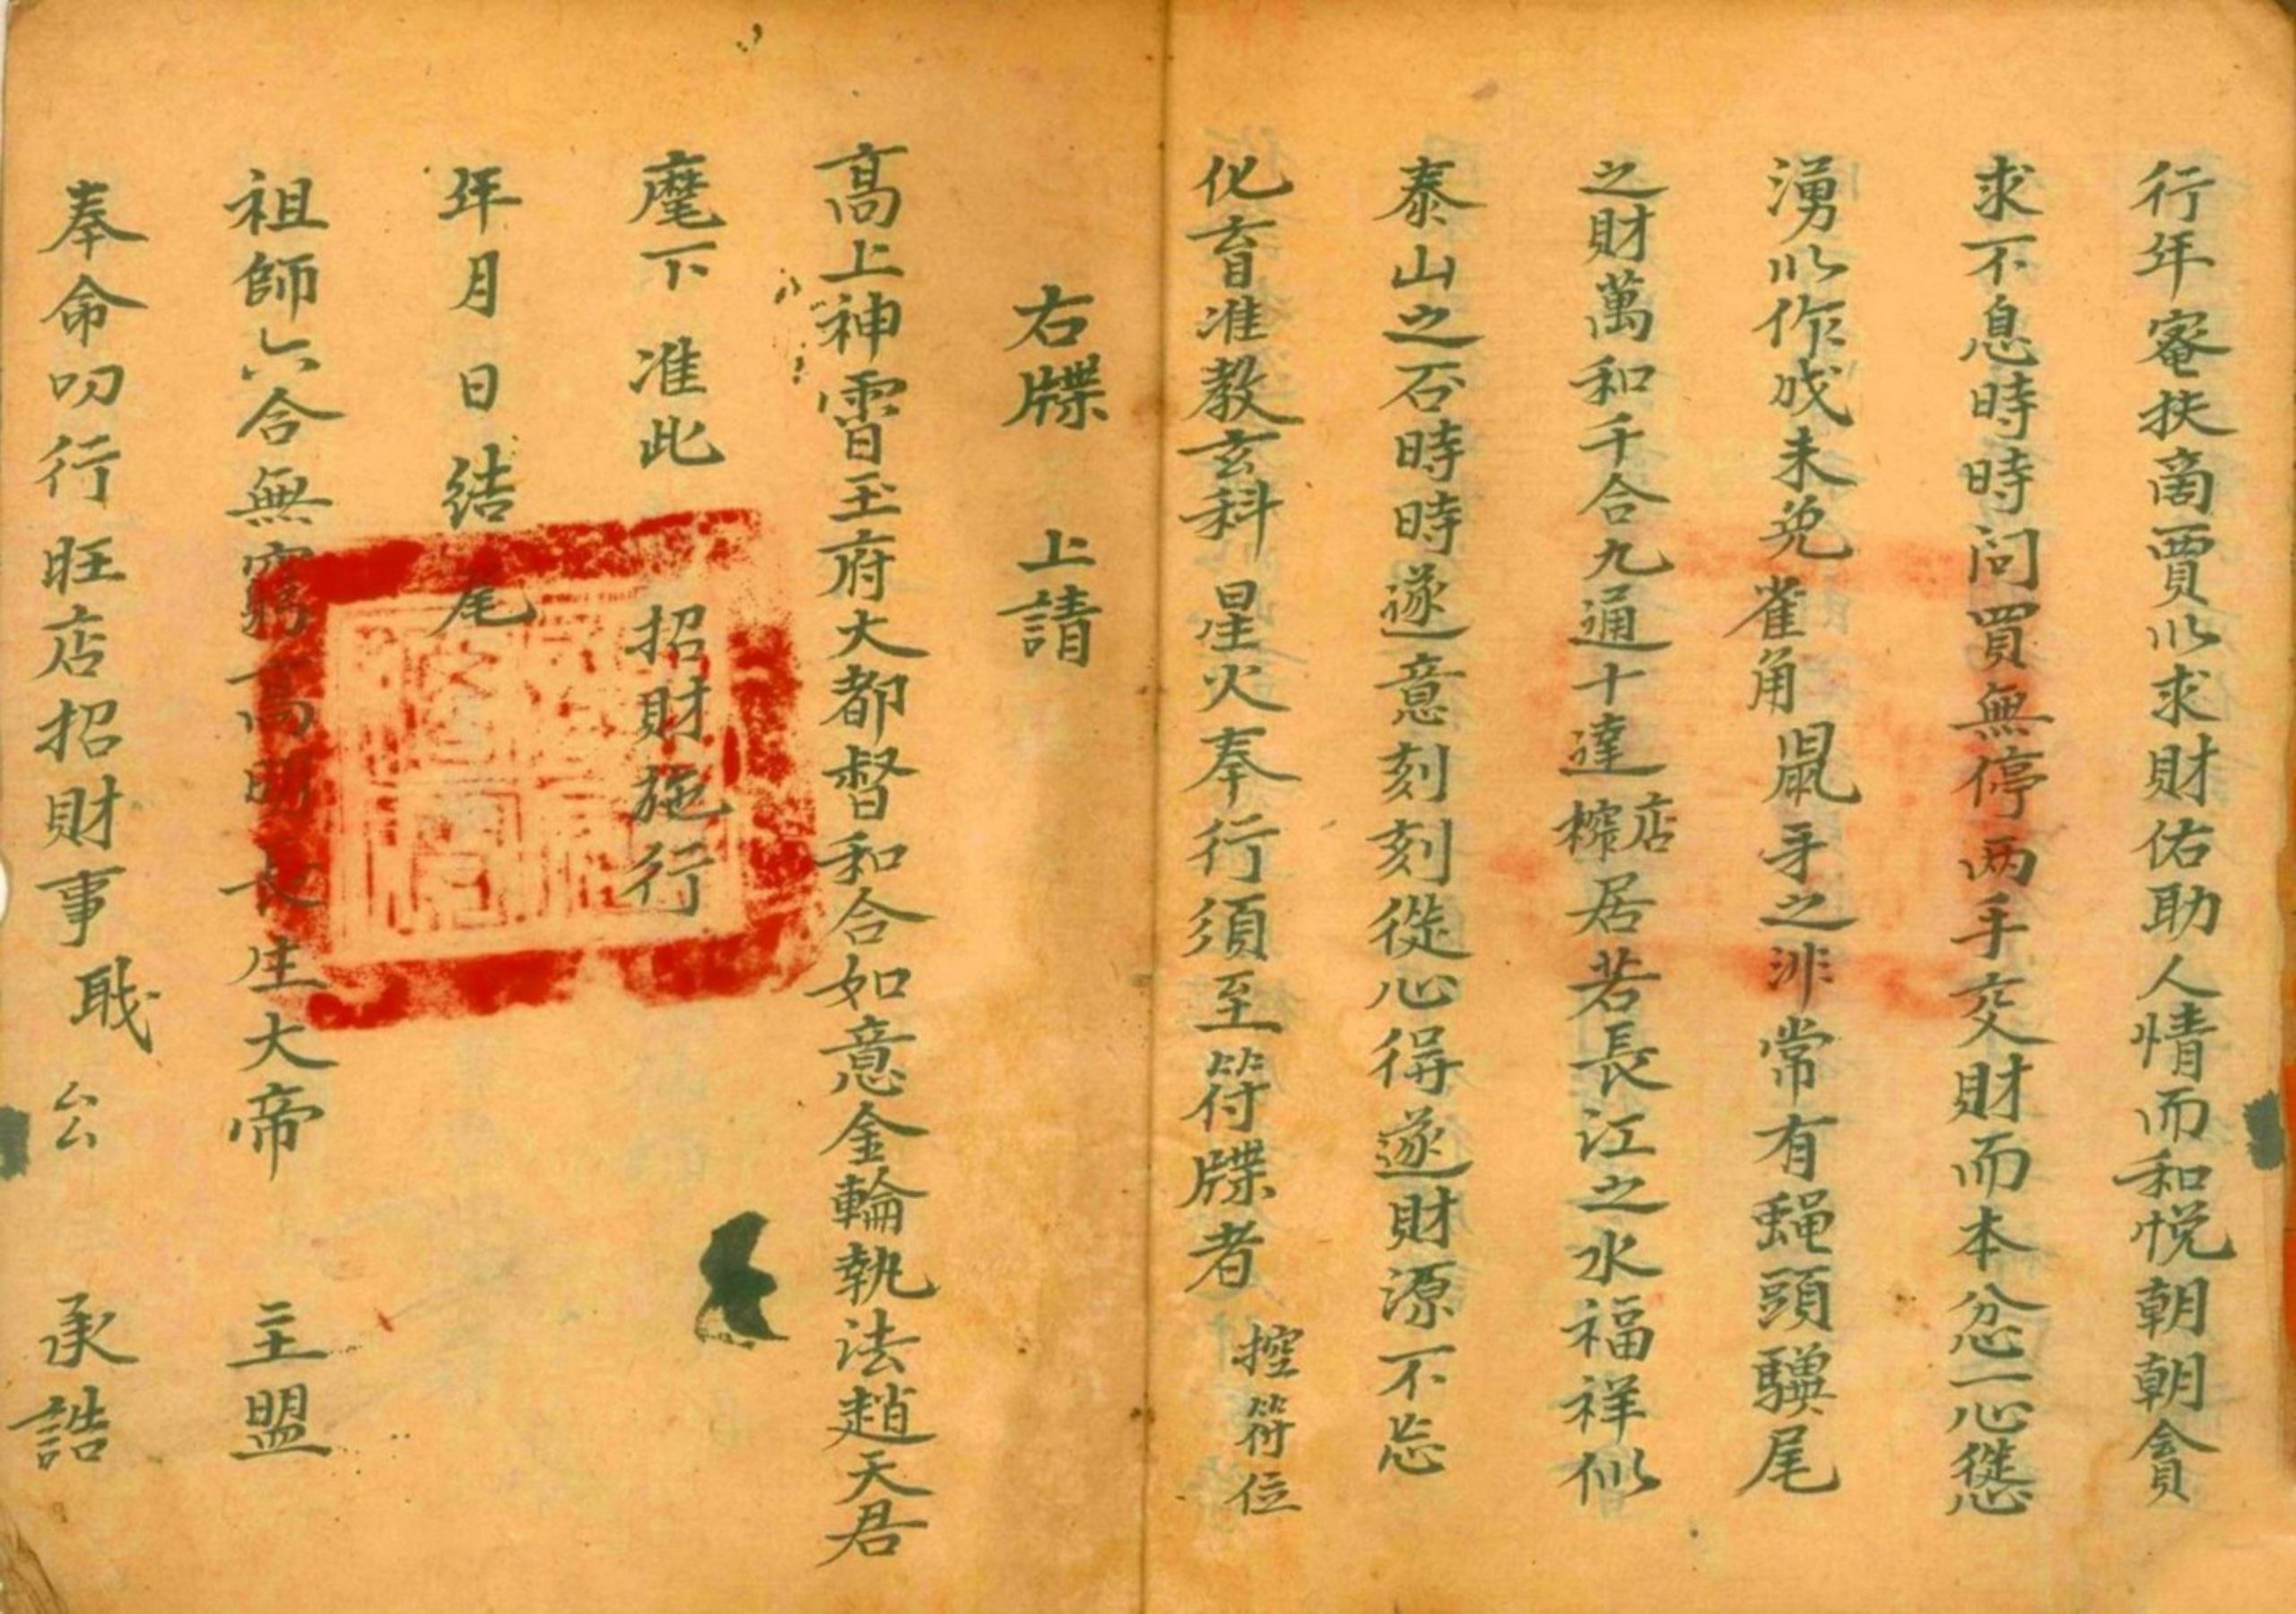 行年密扶啇賈以求財佑助人情而和悅朝朝貪
求不息時時问買無停两手交財而本忿一心慫
湧以作成未免雀角鼠牙之非常有蝇頭驥尾
之財萬和千合九通十達店榨居若長江之水福祥似
泰山之石時時遂意刻刻從心得遂財源不忘
化育准教玄科星火奉行須至符牒者 控符位
右牒 上請
高上神霄玉府大都督和合如意金輪執法趙天君
麾下 准此 招財施行
年月 日 結 尾
祖師六合無窮高明長生大帝 主盟
奉命叨行旺店招財事職 厶 承誥